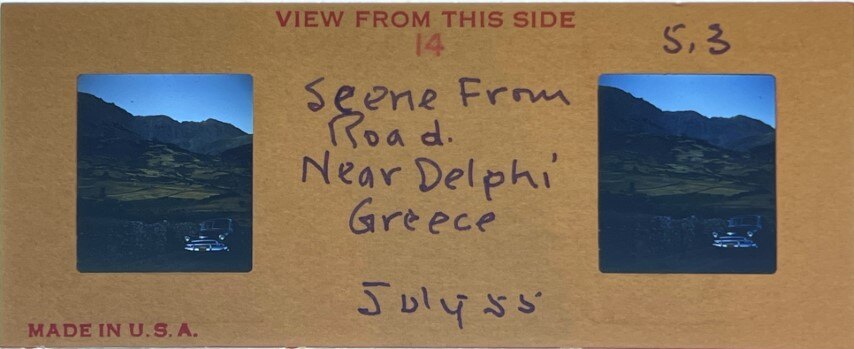 VIEW FROM THIS SIDE
14
5.3
Scene From
Road.
Near Delphi
Greece
July 55
MADE IN U.S.A.